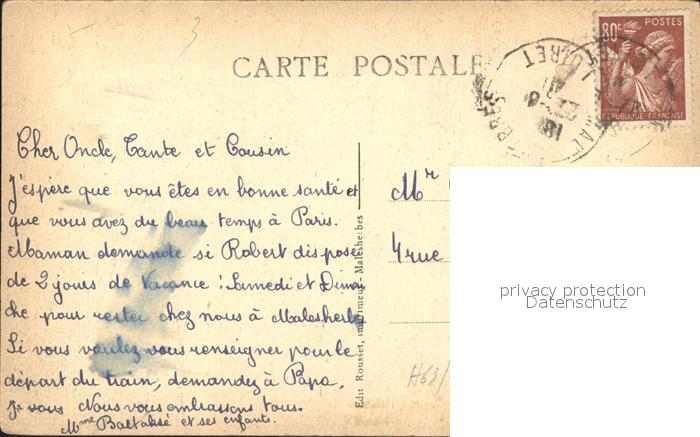 3
CARTE POSTALE
80c POSTES
REPUBLIQUE FRANÇAISE
LOIRET
Cher Oncle, Tante et Cousin
J'espère que vous êtes en bonne santé et
que vous avez du beau temps à Paris.
Maman demande si Robert dispose
de 2 jours de Vacance : Samedi et Diman
che pour rester chez nous à Malesherbes
Si vous voulez vous renseigner pour le
départ du train, demandez à Papa.
Je vous Nous vous embrassons tous.
Mme et ses enfants.
Edit Rousset, imprimeur - Malesherbes
Mr
4 rue
H63/
privacy protection
Datenschutz